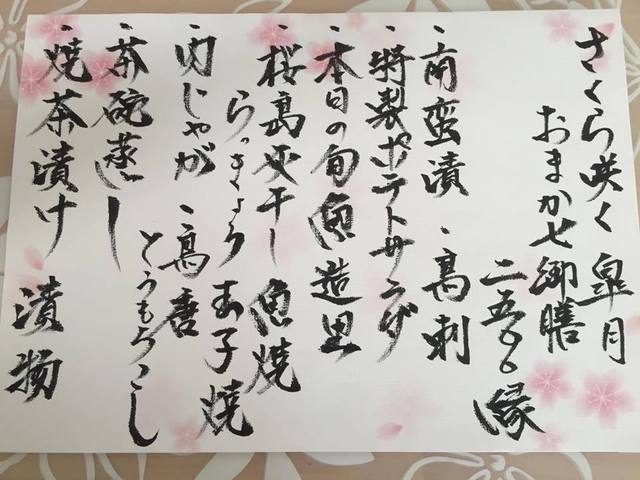 さくら咲く 皐月
おまかせ御膳
二五〇〇縁
・南蛮漬 ・鳥刺
・特製ポテトサラダ
・本日の旬魚造里
・桜島灰干し魚焼
らっきょう 玉子焼
・肉じゃが ・鳥唐
とうもろこし
・茶碗蒸し
・焼茶漬け 漬物